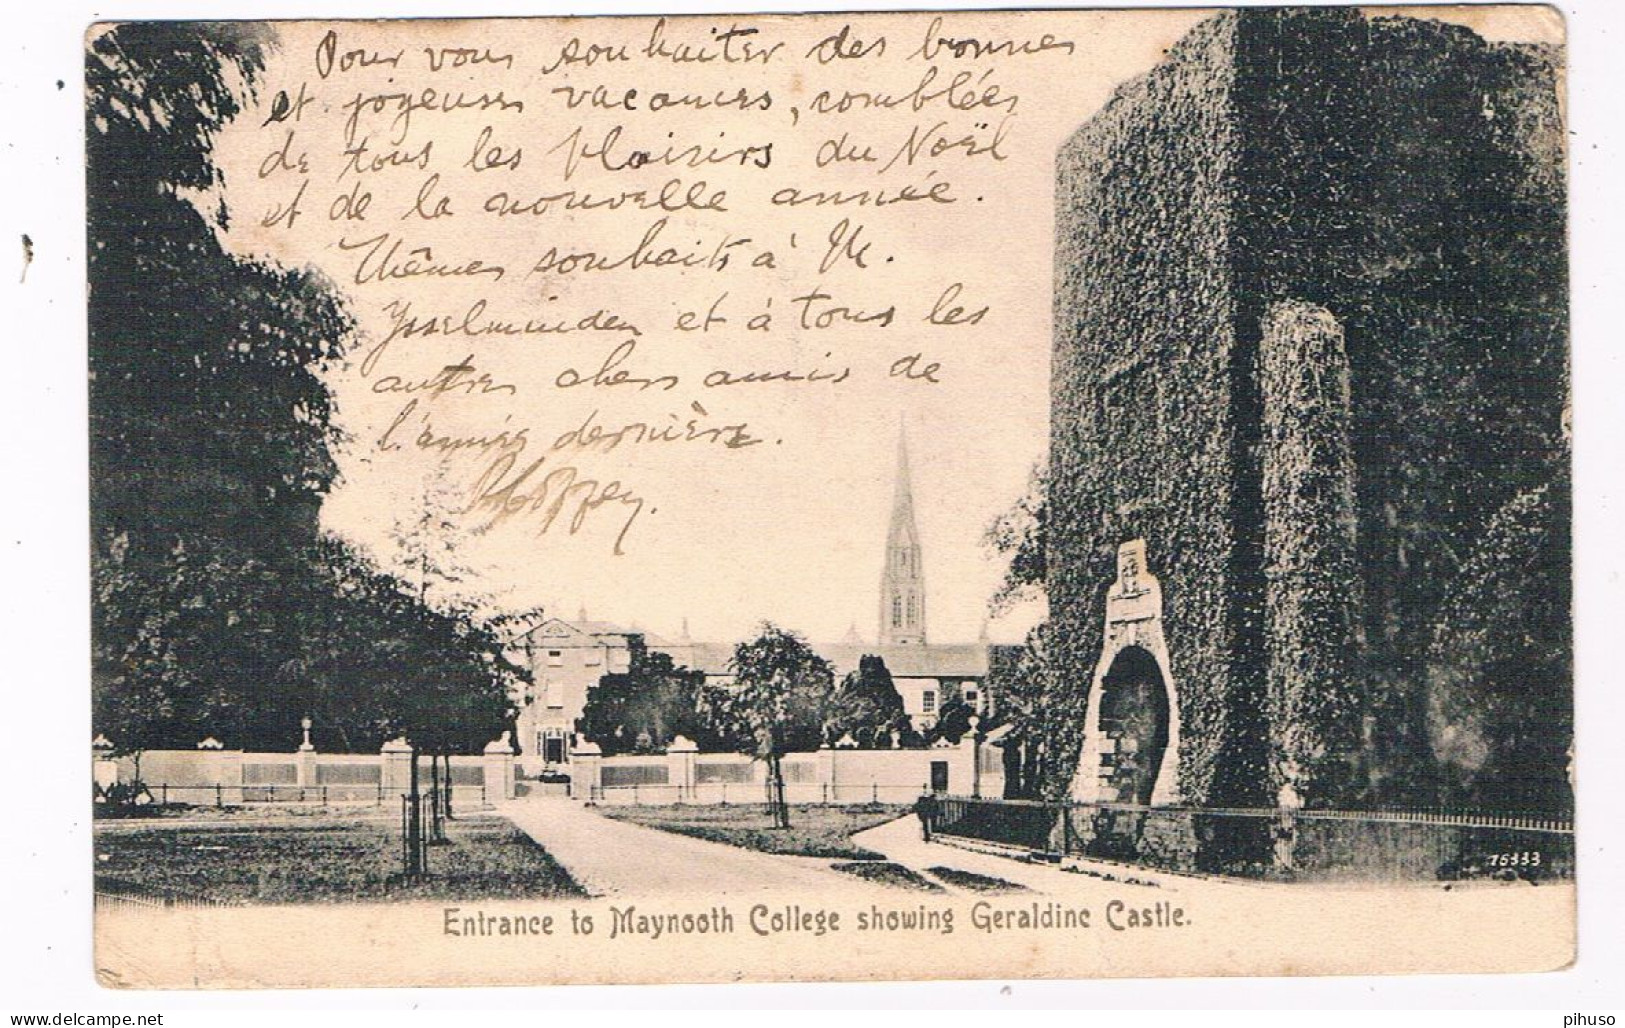 Pour vous souhaiter des bonnes
et joyeuses vacances, comblées
de tous les plaisirs du Noël
et de la nouvelle année.
Mêmes souhaits à M.
Ysselmuiden et à tous les
autres chers amis de
l'année dernière.
Entrance to Maynooth College showing Geraldine Castle.
76333
delcampe.net
pihuso